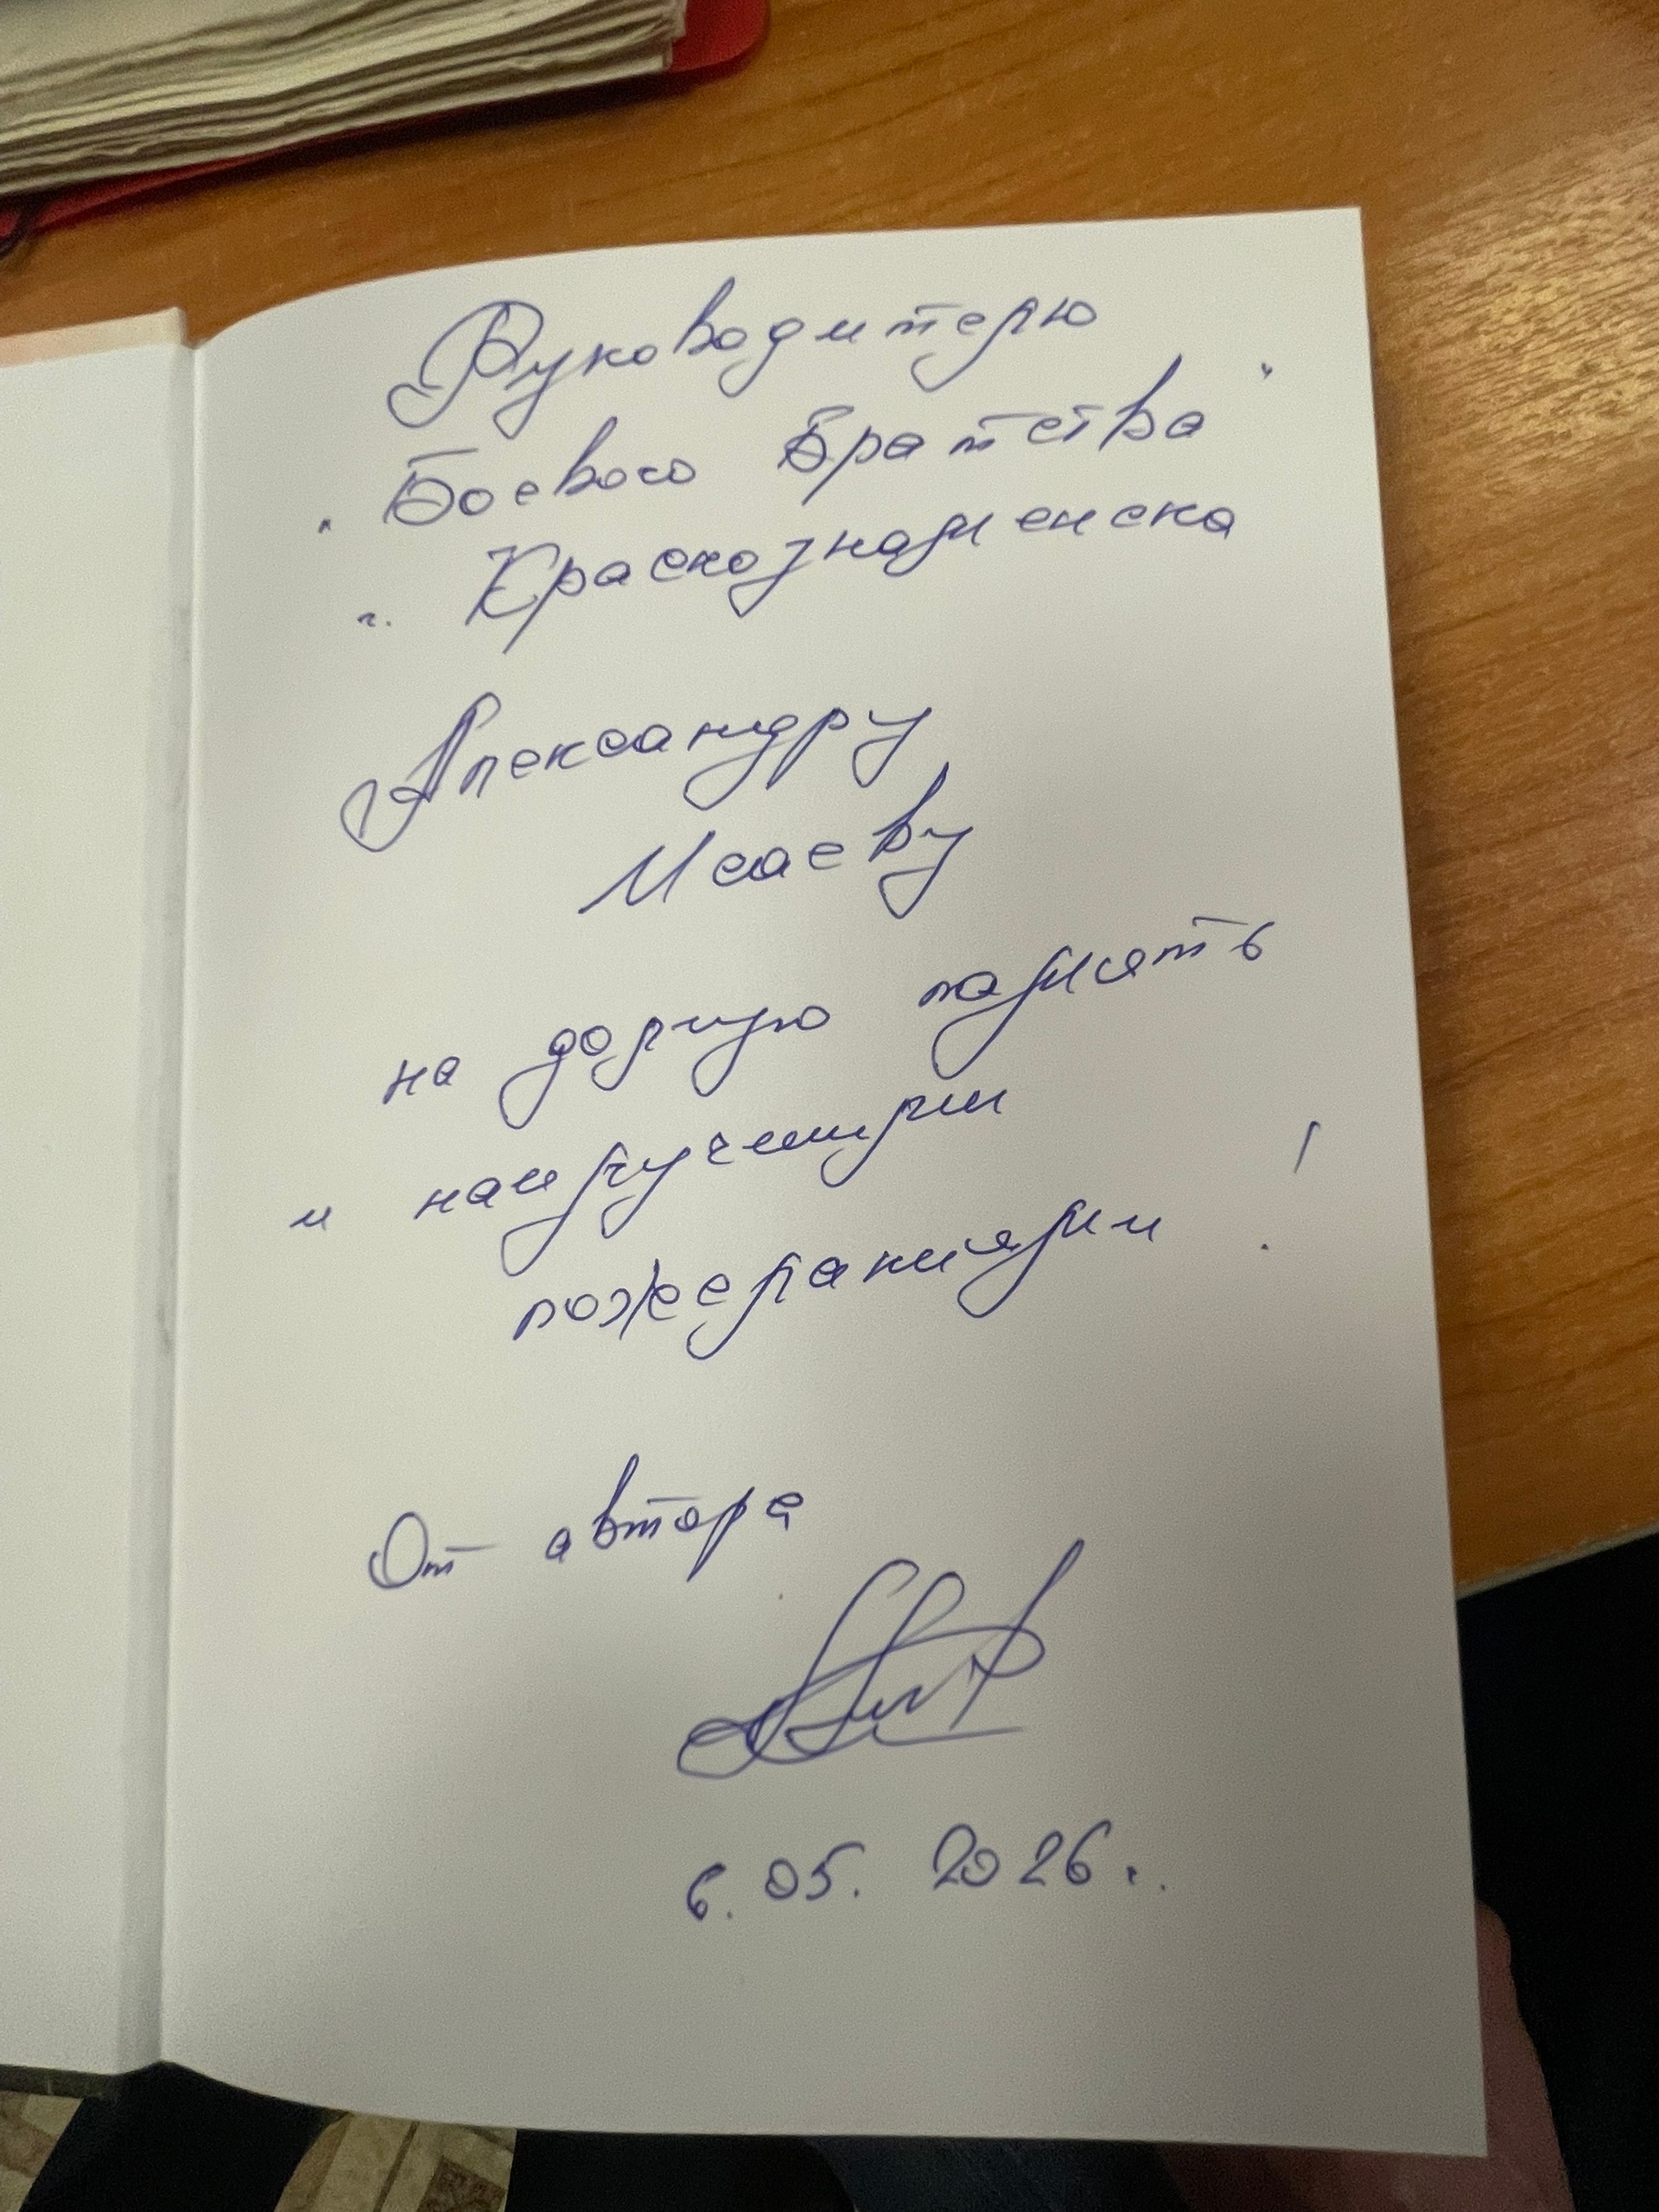 Руководителю
"Боевого Братства"
г. Краснознаменска
Александру
Исаеву
на долгую память
и наилучшими
пожеланиями!
От автора
6.05.2026г.